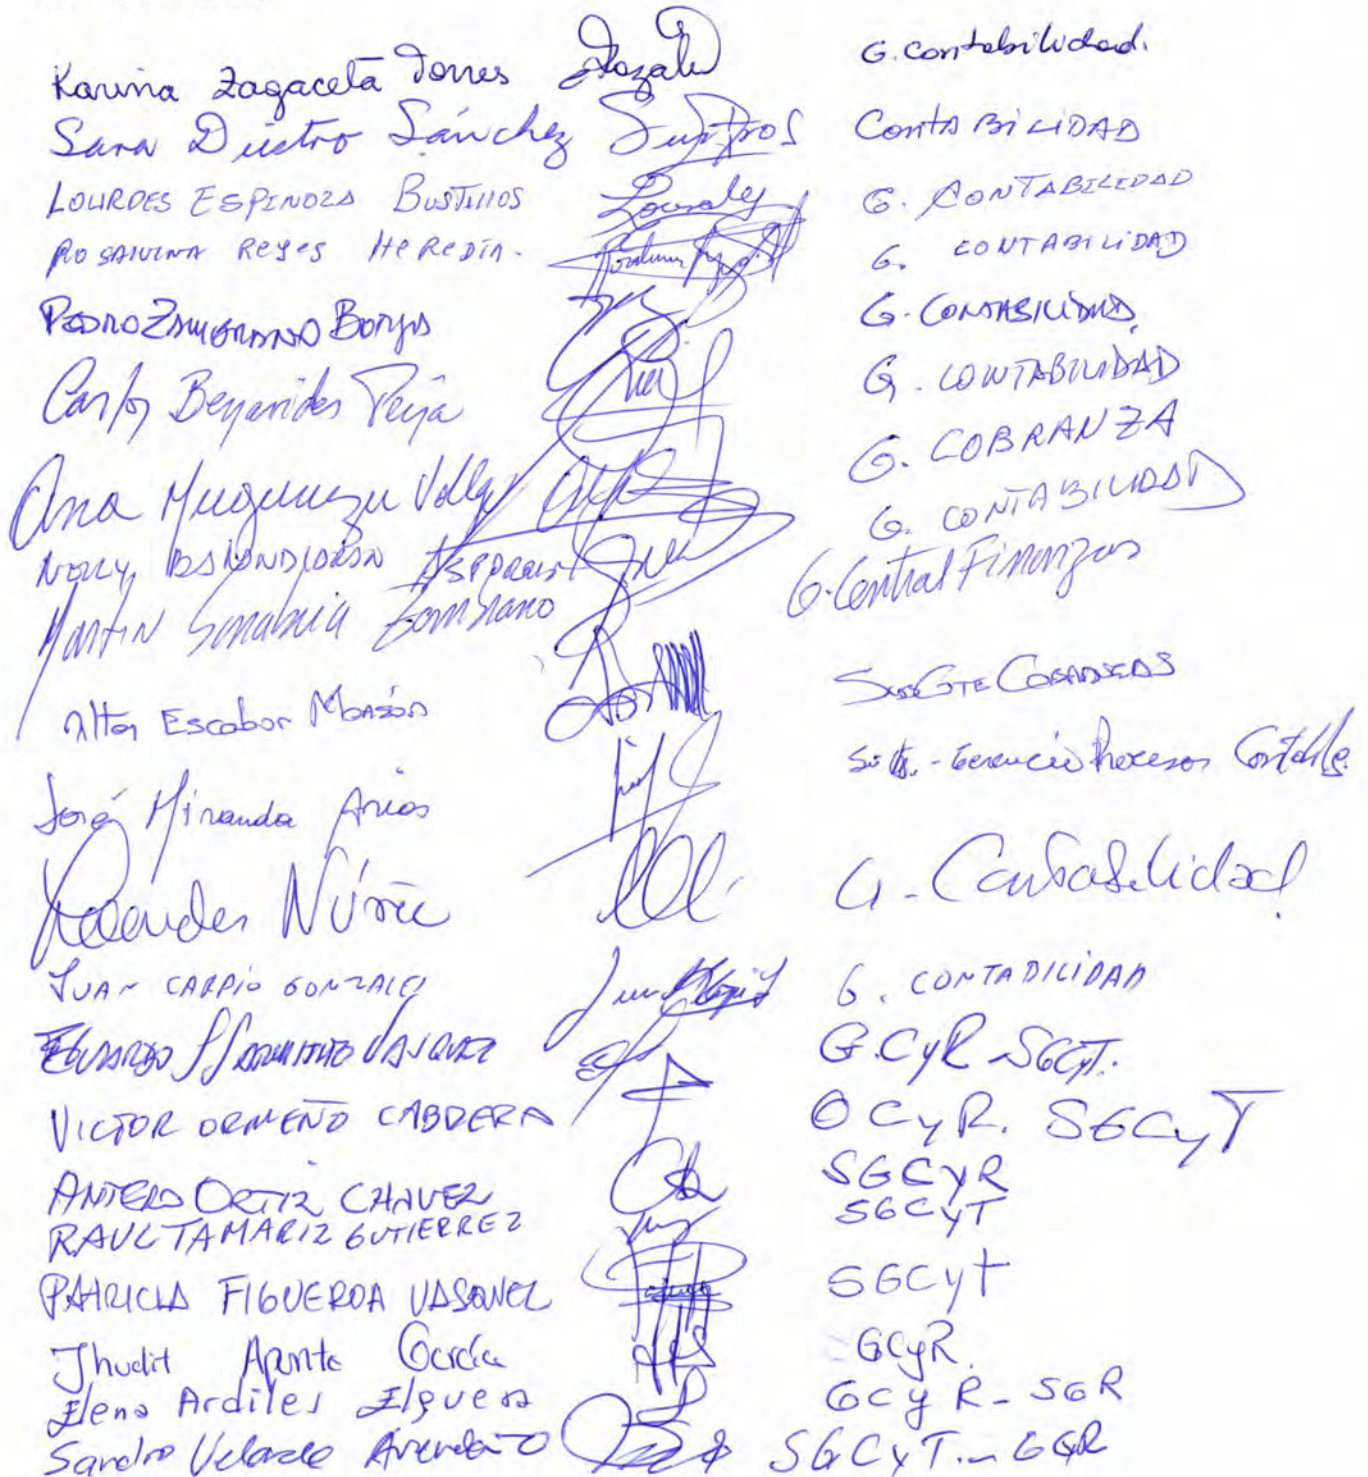 Karina Zagaceta Torres G. Contabilidad.
Sara Diestro Sánchez Contabilidad
LOURDES ESPINOZA BUSTILLOS G. CONTABILIDAD
ROSANINA REYES HEREDIA. G. CONTABILIDAD
PEDRO ZAMBRANO BORJA G. CONTABILIDAD.
Carlos Benavides G. CONTABILIDAD
G. COBRANZA
Ana G. CONTABILIDAD
G. Central Finanzas
Martin Sanabria Zambrano
Escobar SubGTE COBRANZAS
José Miranda Arias Gerencia Procesos Contable.
Núñez G. Contabilidad
JUAN CARPIO GONZALEZ G. CONTABILIDAD
EDUARDO VASQUEZ G.CyR - SGCyT.
VICTOR ORMEÑO CABRERA CyR. SGCyT
ANTERO ORTIZ CHAVEZ SGCYR
RAUL TAMARIZ GUTIERREZ SGCyT
PATRICIA FIGUEROA VASQUEZ SGCyT
Jhudit Aponte García GCyR.
Elena Ardiles Elguera GCyR - SGR
Sandro Velarde Avendaño SGCyT. - GCyR